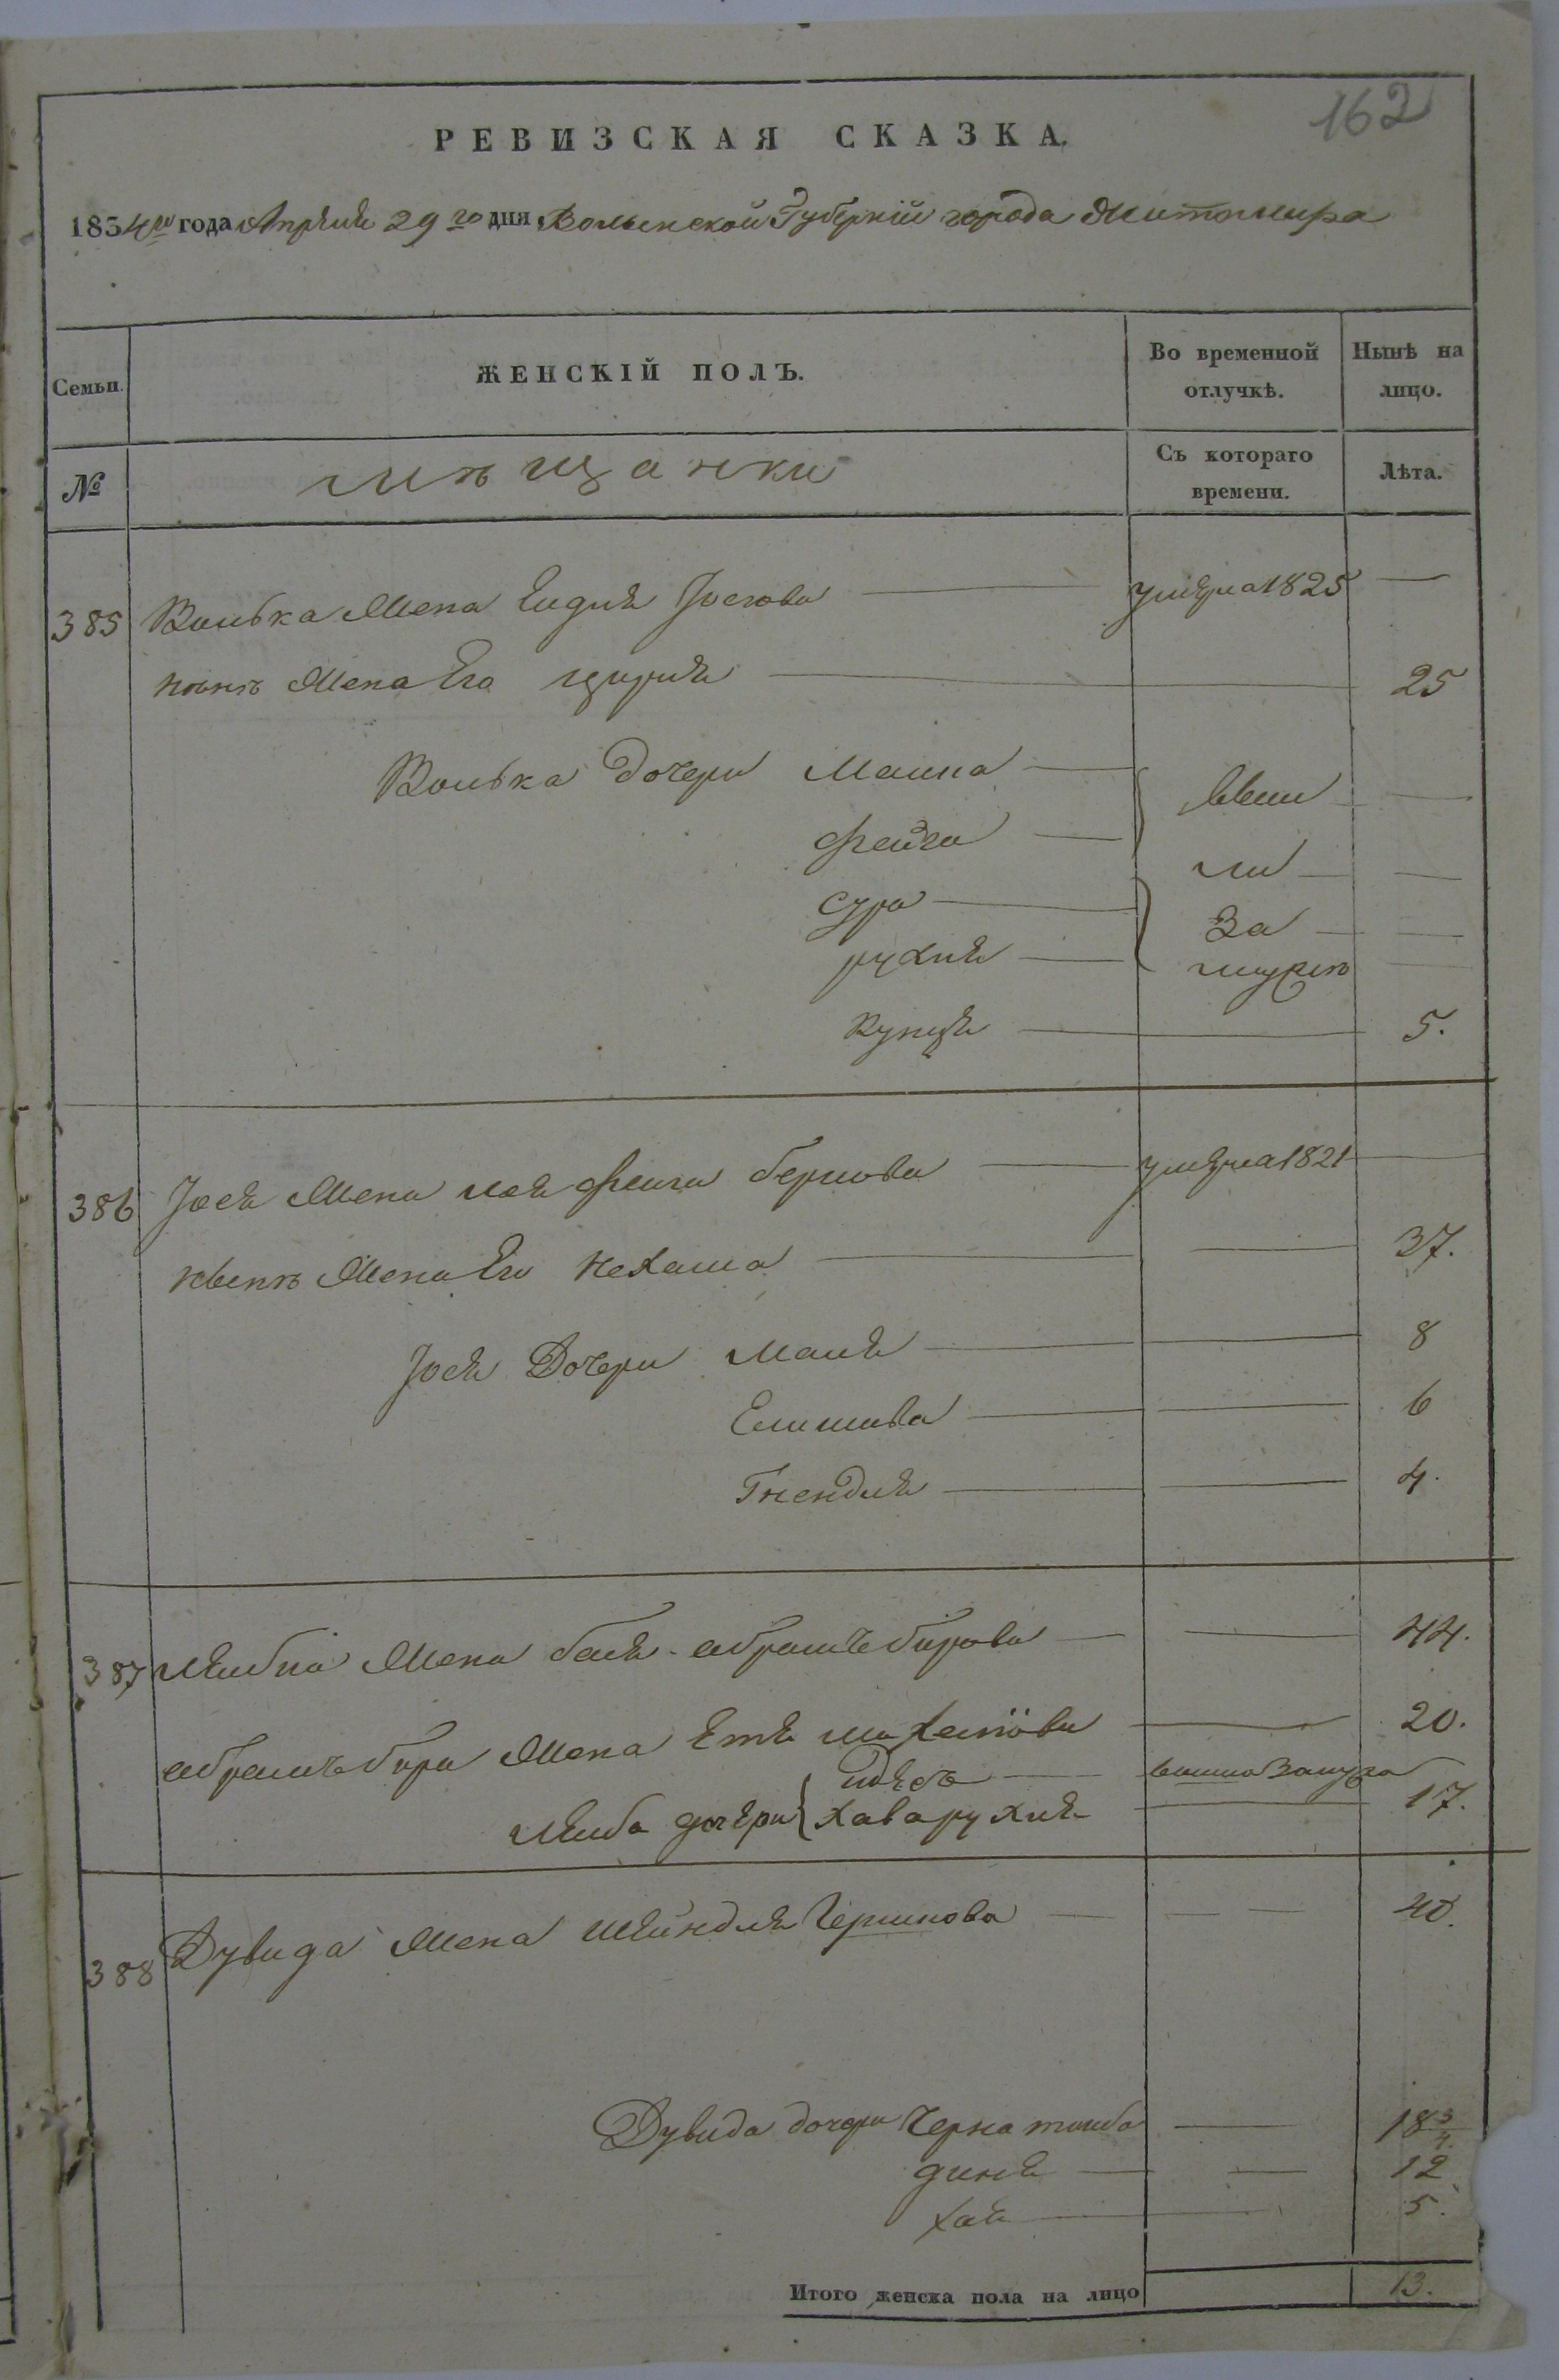 162
РЕВИЗСКАЯ СКАЗКА.
1834го года Апреля 29го дня Волынской Губерніи города Житомира
Семьи. ЖЕНСКІЙ ПОЛЪ. Во временной отлучкѣ. Нынѣ на лицо.
№ мѣщанки Съ котораго времени. Лѣта.
385 Волька Жена Ендля Іосіова — умерла 1825 —
Жена Его — 25
Волька Дочери Малка — вышли —
Фейга —
Сура — За —
рухля — мужъ —
Купця — 5.
386 Іося Жена Лея Фейга беркова — умерла 1821 —
Жена Его Нехама — 37.
Іося Дочери Маля — 8
Елишева — 6
Гнендля — 4.
387 Лейба Жена бася абрамъ берова — 44.
абрамъ бера Жена Етя — 20.
Лейба дочери { — вышла Замужъ
хава рухля — 17.
388 Дувида Жена Шейндля Гершкова — 40.
Дувида дочери Черна тойба — 18 3/4.
диня — 12
хая — 5.
Итого женска пола на лицо 13.